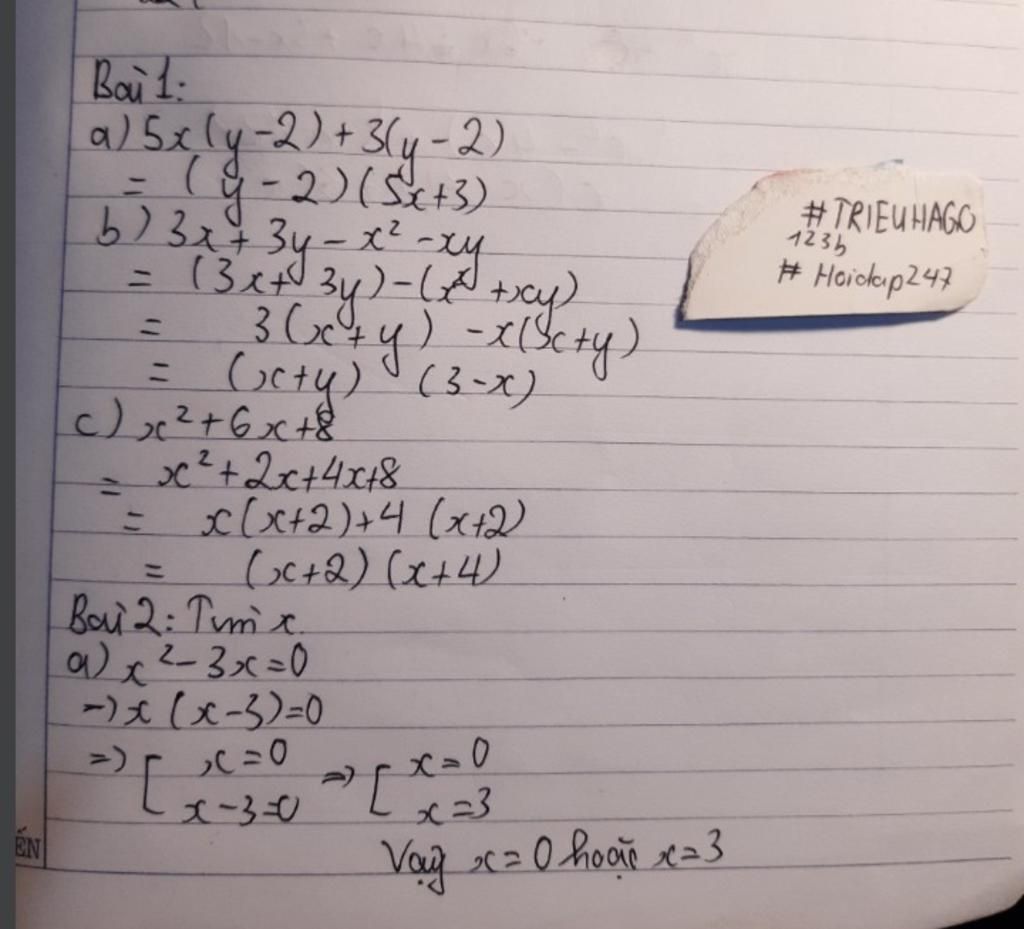 Bài 1:
a) 5x(y-2)+3(y-2)
= (y-2)(5x+3)
b) 3x+3y-x²-xy
= (3x+3y)-(x²+xy)
= 3(x+y) -x(x+y)
= (x+y) (3-x)
c) x²+6x+8
= x²+2x+4x+8
= x(x+2)+4 (x+2)
= (x+2)(x+4)
Bài 2: Tìm x.
a) x²-3x=0
→ x(x-3)=0
=> [ x=0 => [ x=0
x-3=0 x=3
Vậy x=0 hoặc x=3
#TRIEUHAGO
123b
# Hoidap247
ẾN